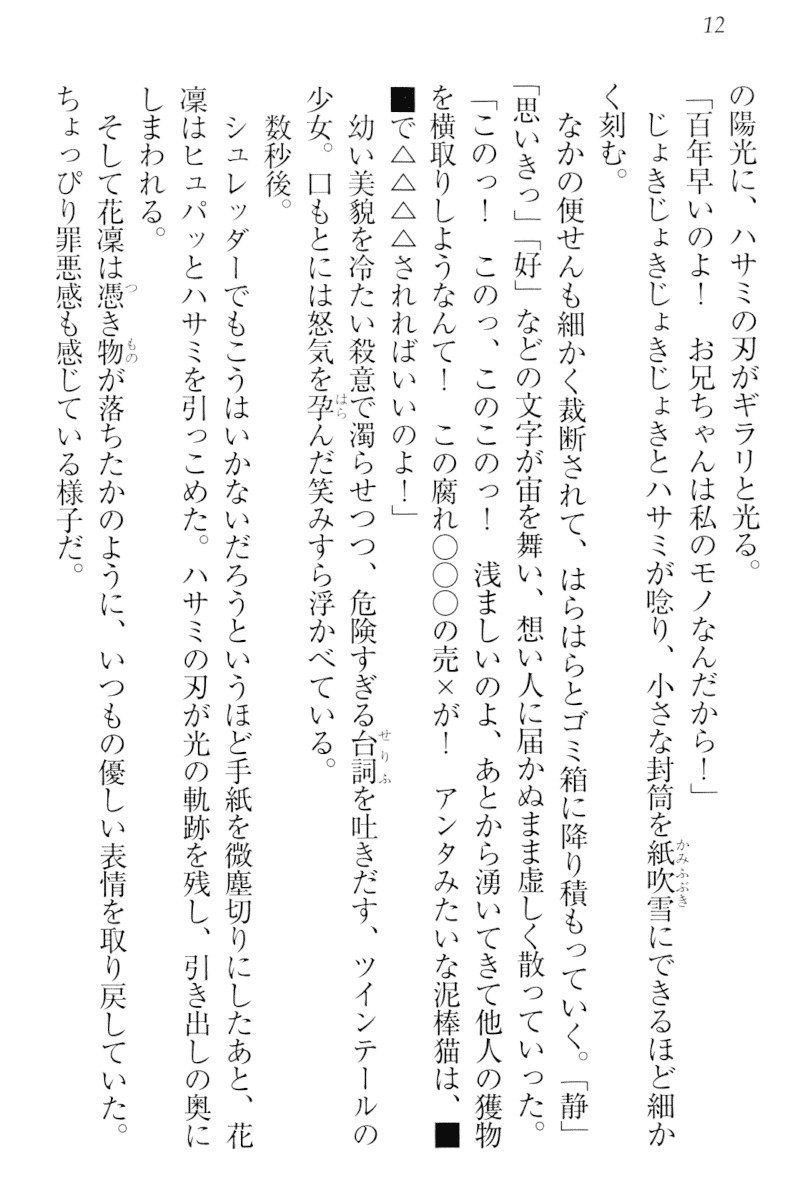 12
の陽光に、ハサミの刃がギラリと光る。
「百年早いのよ！　お兄ちゃんは私のモノなんだから！」
じょきじょきじょきじょきとハサミが唸り、小さな封筒を紙吹雪にできるほど細か
く刻む。
なかの便せんも細かく裁断されて、はらはらとゴミ箱に降り積もっていく。「静」
「思いきっ」「好」などの文字が宙を舞い、想い人に届かぬまま虚しく散っていった。
「このっ！　このっ、このこのっ！　浅ましいのよ、あとから湧いてきて他人の獲物
を横取りしようなんて！　この腐れ〇〇〇の売×が！　アンタみたいな泥棒猫は、■
■で△△△△されればいいのよ！」
幼い美貌を冷たい殺意で濁らせつつ、危険すぎる台詞を吐きだす、ツインテールの
少女。口もとには怒気を孕んだ笑みすら浮かべている。
数秒後。
シュレッダーでもこうはいかないだろうというほど手紙を微塵切りにしたあと、花
凜はヒュパッとハサミを引っこめた。ハサミの刃が光の軌跡を残し、引き出しの奥に
しまわれる。
そして花凜は憑き物が落ちたかのように、いつもの優しい表情を取り戻していた。
ちょっぴり罪悪感も感じている様子だ。